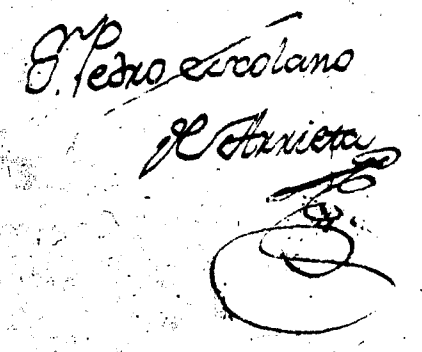 Pedro Escolano
de Arrieta